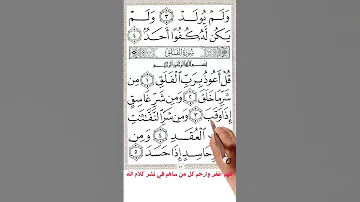 وَلَمْ يُولَدْ ٣ وَلَمْ
يَكُن لَّهُۥ كُفُوًا أَحَدٌۢ ٤
سُورَةُ الفَلَقِ
بِسْمِ ٱللَّهِ ٱلرَّحْمَٰنِ ٱلرَّحِيمِ
قُلْ أَعُوذُ بِرَبِّ ٱلْفَلَقِ ١ مِن
شَرِّ مَا خَلَقَ ٢ وَمِن شَرِّ غَاسِقٍ
إِذَا وَقَبَ ٣ وَمِن شَرِّ ٱلنَّفَّٰثَٰتِ
ٱلْعُقَدِ ٤ وَمِن
حَاسِدٍ إِذَا حَسَدَ ٥
اغفر وارحم كل من ساهم في نشر كلام الله